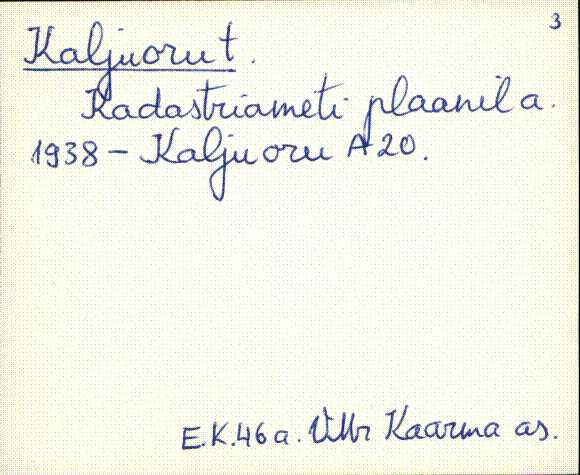 3
Kaljuoru t.
Kadastriameti plaanil a.
1938 – Kaljuoru A 20.
E.K.46 a. VMr Kaarma as.